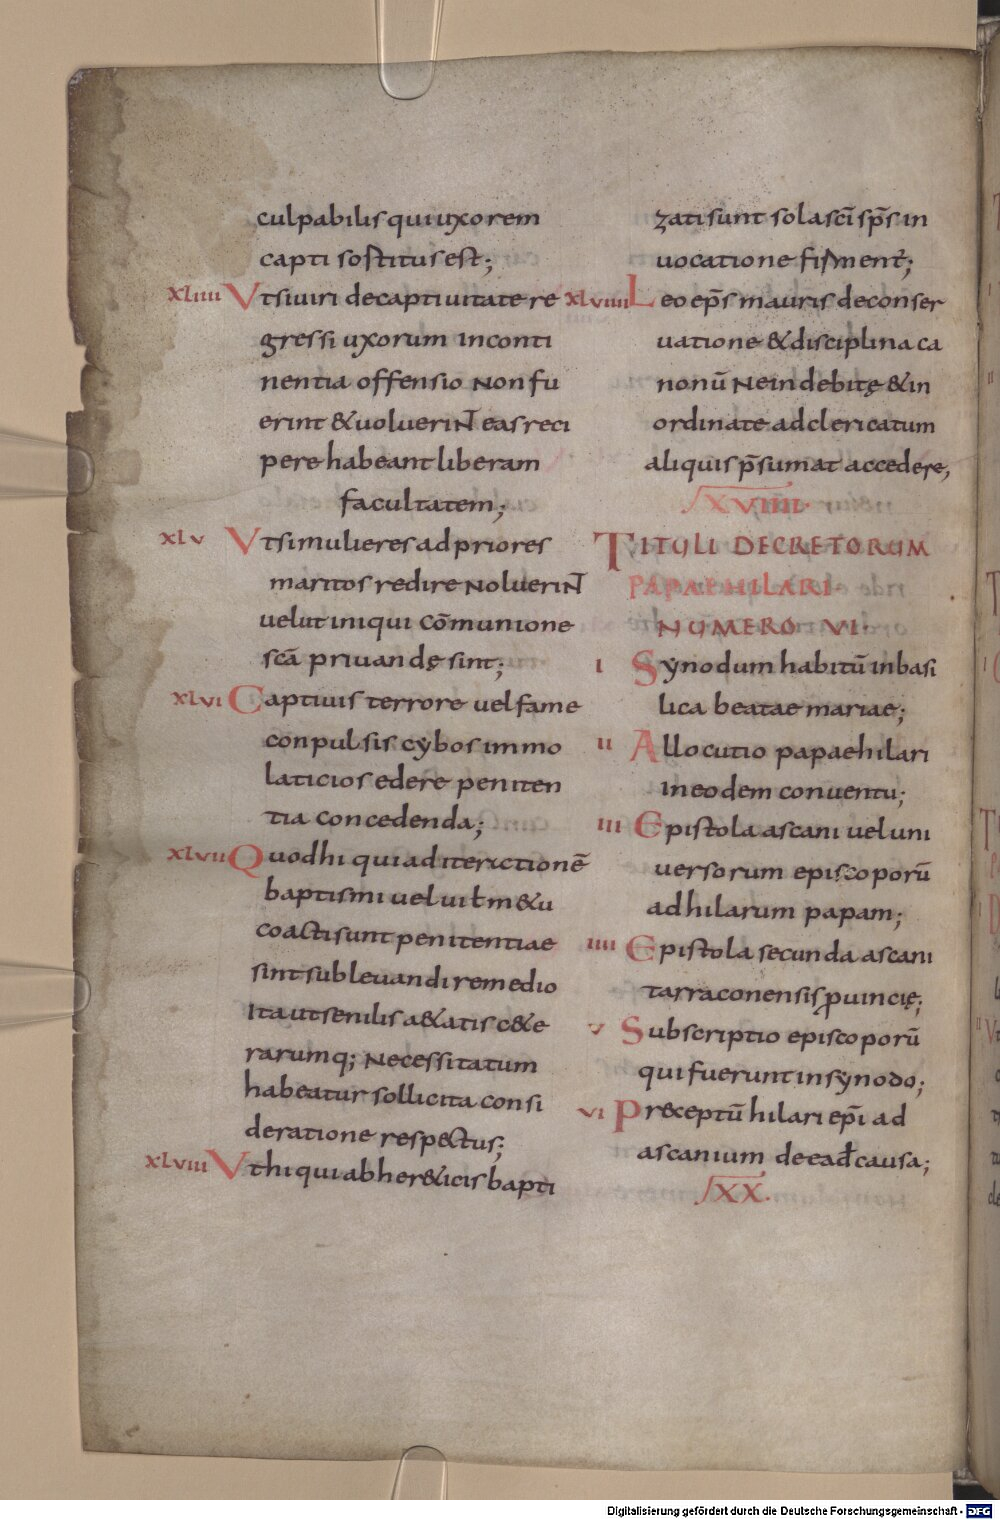 culpabilis qui uxorem
capti sostitus est;
xliiii Vt si uiri de captiuitate re
gressi uxorum inconti
nentia offensio non fu
erint & uoluerint̄ eas reci
pere habeant liberam
facultatem;
xlv Vt si mulieres ad priores
maritos redire noluerint̄
uelut iniqui com̄munione
scā priuandę sint;
xlvi Captiuis terrore uel fame
conpulsis cybos immo
laticios edere peniten
tia concedenda;
xlvii Quod hi qui ad iterictionē
baptismi uel uit̄m &u
coacti sunt penitentiae
sint subleuandi remedio
Ita ut senilis a&atis c&e
rarumq; necessitatum
habeatur sollicita consi
deratione respectus;
xlviii Vt hi qui ab her&icis bapti
zati sunt sola scī sps̄ in
uocatione firment̄;
xlviiii Leo eps̄ mauris de conser
uatione & disciplina ca
nonū ne indebitę & in
ordinate ad clericatum
aliquis p̄sumat accedere,
XVIIII.
TITULI DECRETORUM
PAPAE HILARI
NUMERO VI.
i Synodum habitū in basi
lica beatae mariae;
ii Allocutio papae hilari
in eodem conuentu;
iii Epistola ascani uel uni
uersorum episcoporū
ad hilarum papam;
iiii Epistola secunda ascani
tarraconensis ꝓuincię;
v Subscriptio episcoporū
qui fuerunt in synodo;
vi Pr&ceptū hilari epī ad
ascanium de ead̄ causa;
XX.
Digitalisierung gefördert durch die Deutsche Forschungsgemeinschaft - DFG